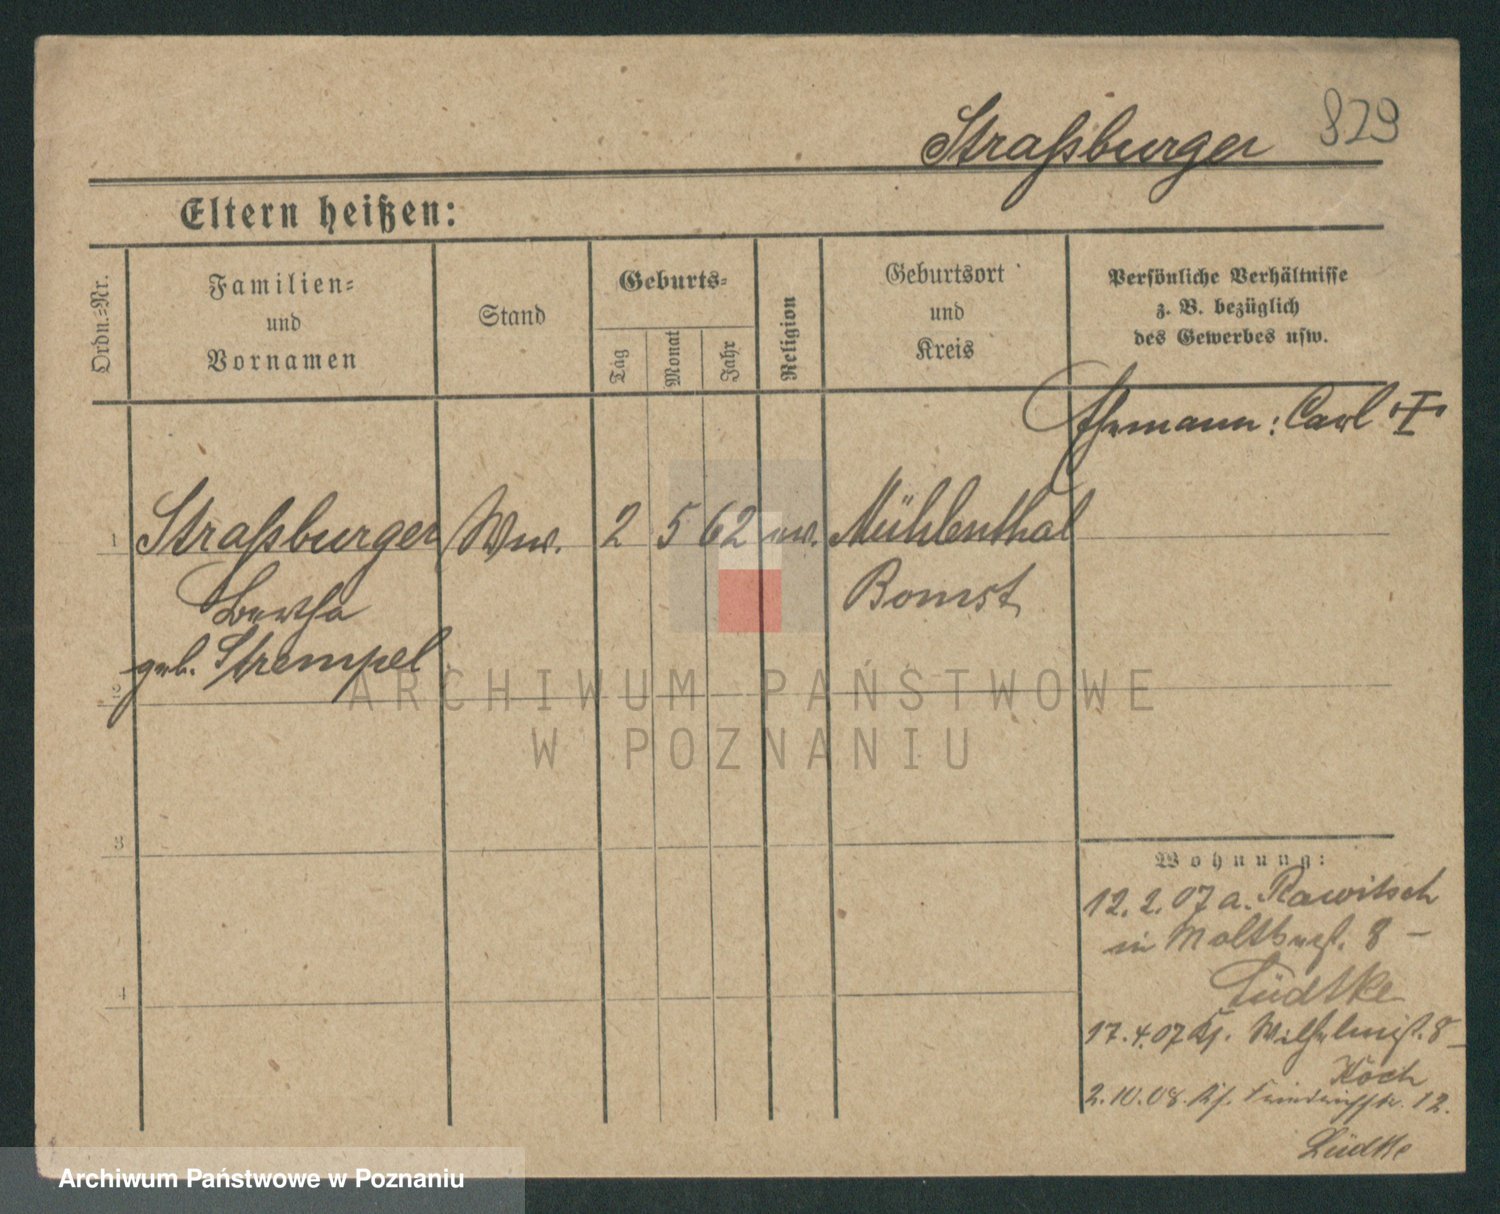 829
Straßburger
Eltern heißen:
Ordn.=Nr.
Familien=
und
Vornamen
Stand
Geburts=
Tag
Monat
Jahr
Religion
Geburtsort
und
Kreis
Persönliche Verhältnisse
z. B. bezüglich
des Gewerbes usw.
Ehemann: Carl
1 Straßburger Ww. 2 5 62 ev. Mühlenthal
Bertha Bomst
geb. Strempel
2
3
4
Wohnung:
12.2.07 a. Rawitsch
in 8 –
Lüdtke
17.4.07 Wilhelmst. 8 –
Koch
2.10.08. Friedrichstr. 12.
Lüdtke
ARCHIWUM PAŃSTWOWE
W POZNANIU
Archiwum Państwowe w Poznaniu